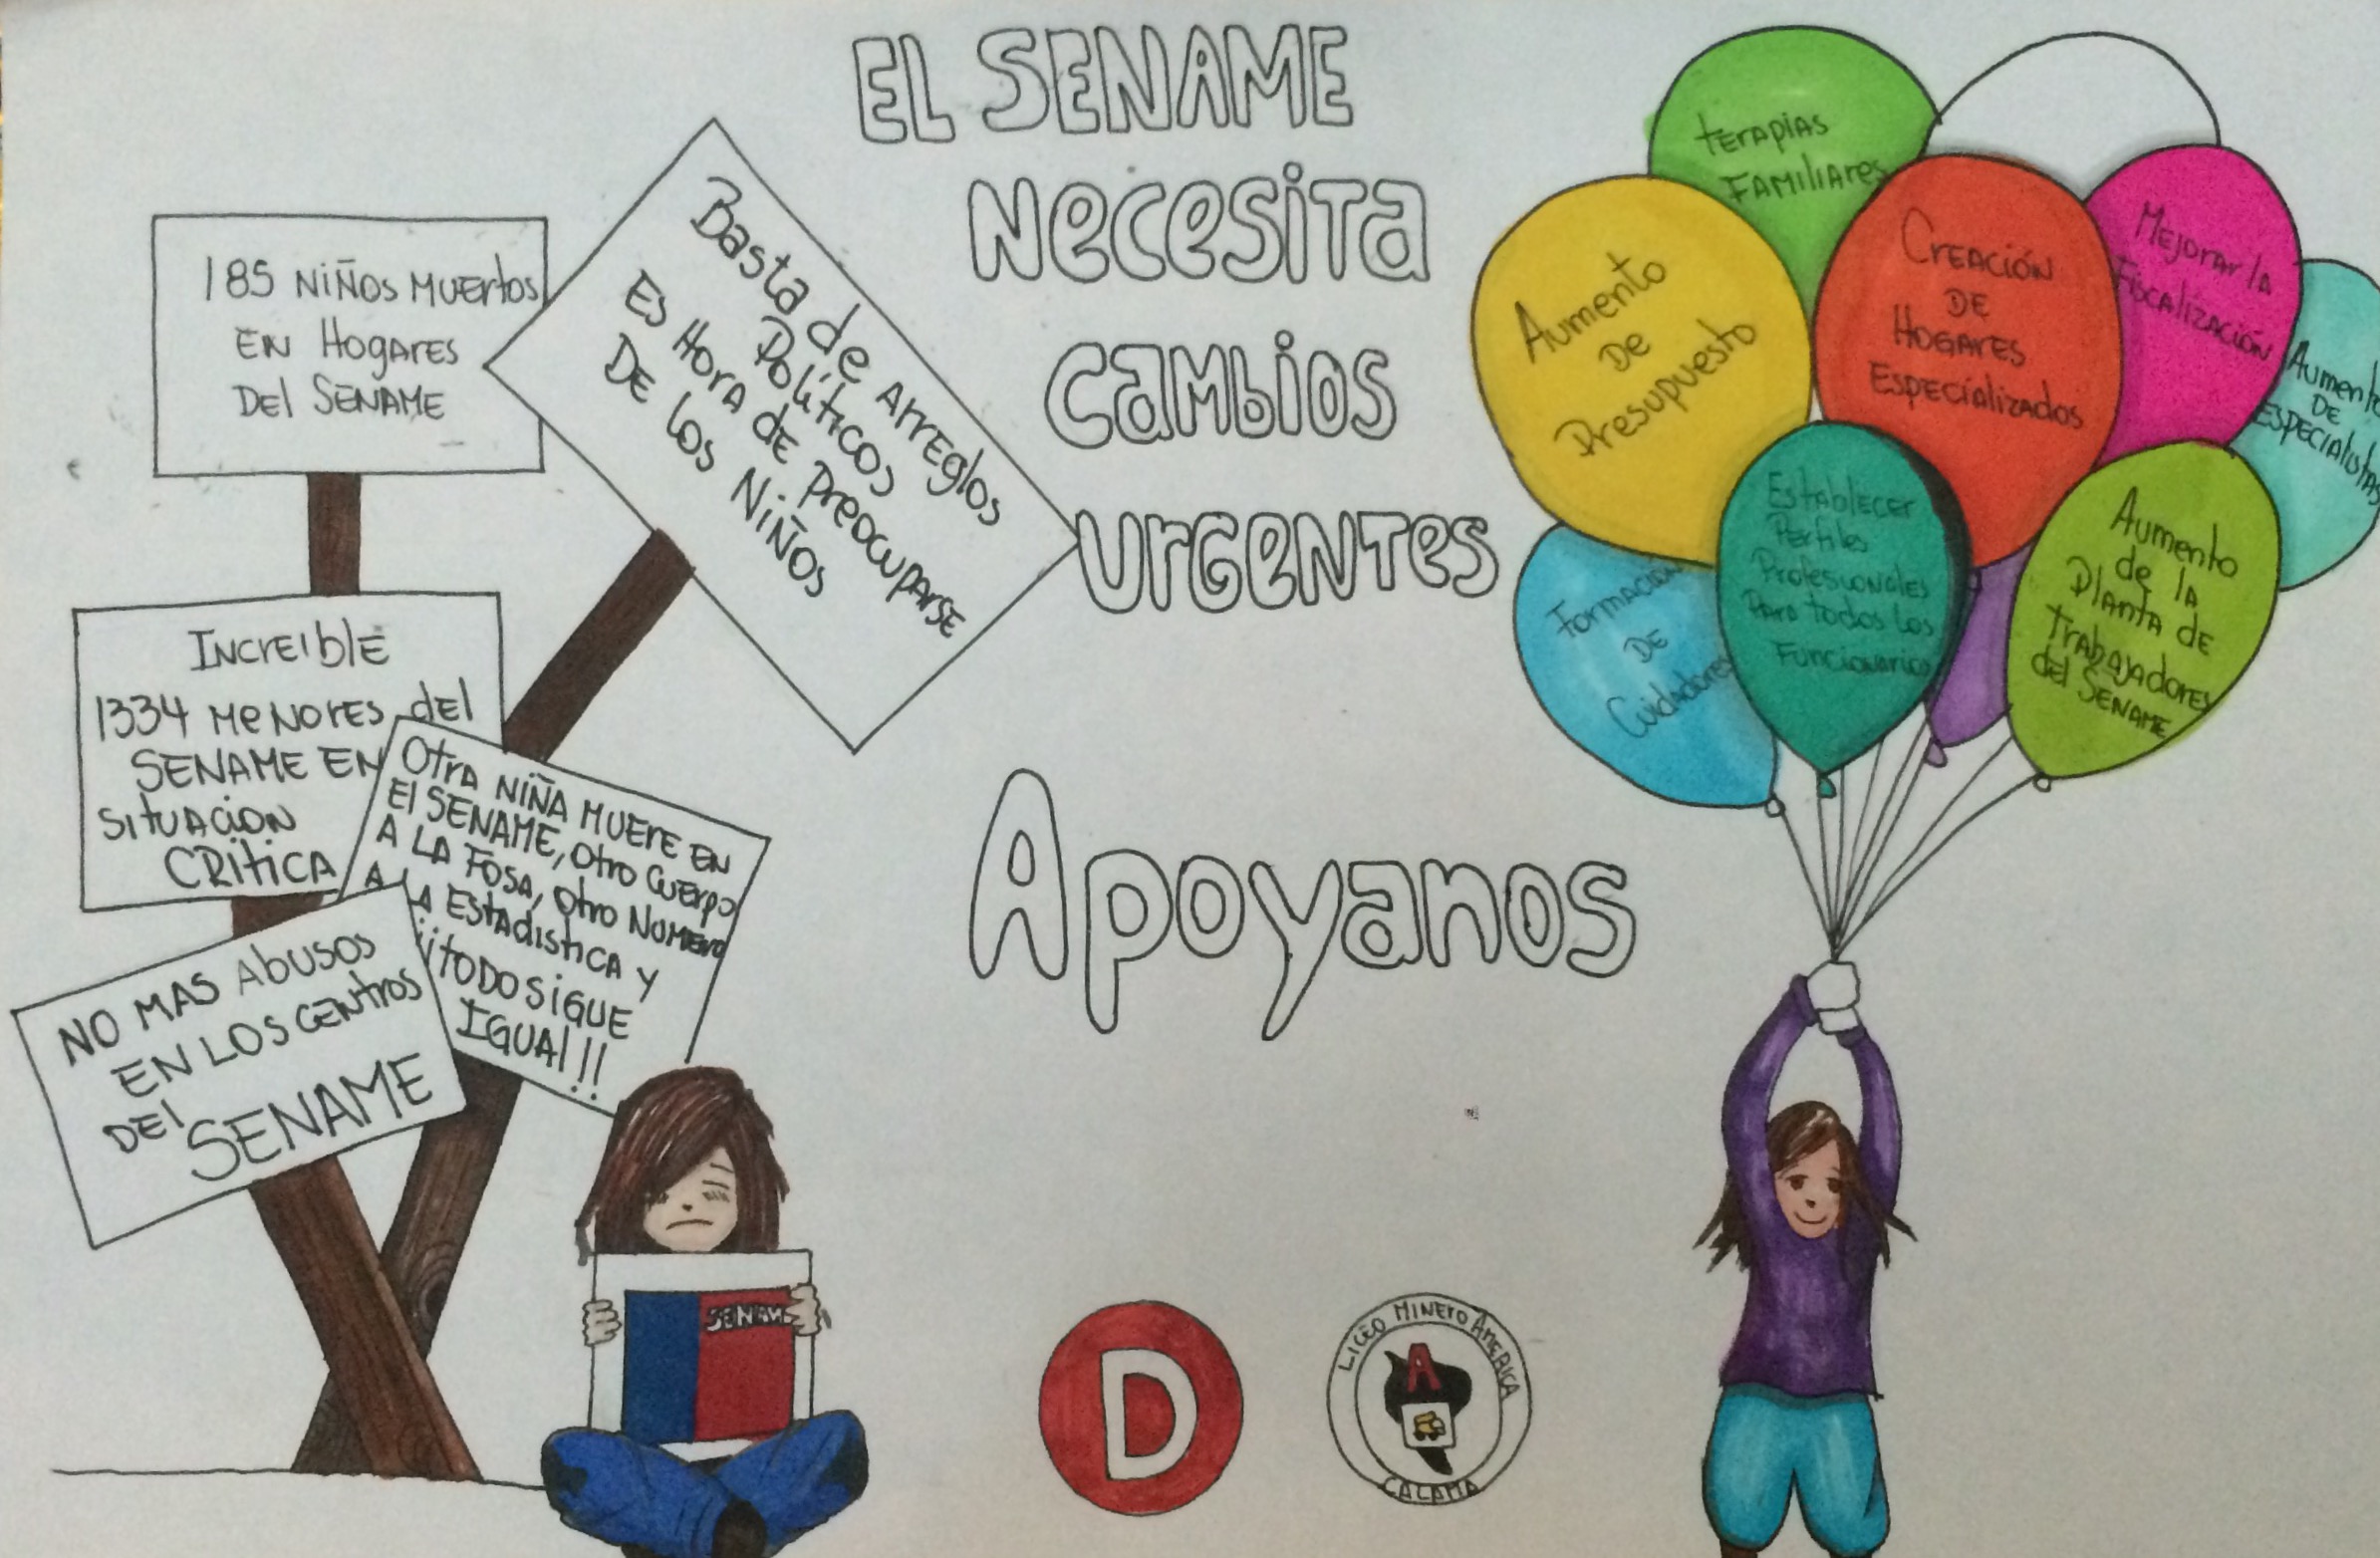 EL SENAME
Necesita
Cambios
Urgentes
Apoyanos
185 NiÑos Muertos
EN Hogares
Del SENAME
Basta de arreglos
Políticos
Es Hora de Preocuparse
De los Niños
INCREIBLE
1334 MeNores del
SENAME EN
Situacion
CRitica
Otra Niña Muere en
El SENAME, Otro Cuerpo
A LA Fosa, Otro Numero
A LA Estadistica y
¡¡TODO SIGUE
IGUAl!!
NO MAS Abusos
EN LOS CENtros
DEl
SENAME
SENAM
D
Liceo Minero América
A
CALAMA
Terapias
Familiares
Aumento
De
Presupuesto
Creación
DE
Hogares
Especializados
Mejorar la
Fiscalización
Aument
DE
Especialistas
Formación
DE
Cuidadores
Establecer
Perfiles
Profesionales
Para todos los
Funcionarios
Aumento
de la
Planta de
Trabajadores
del SENAME